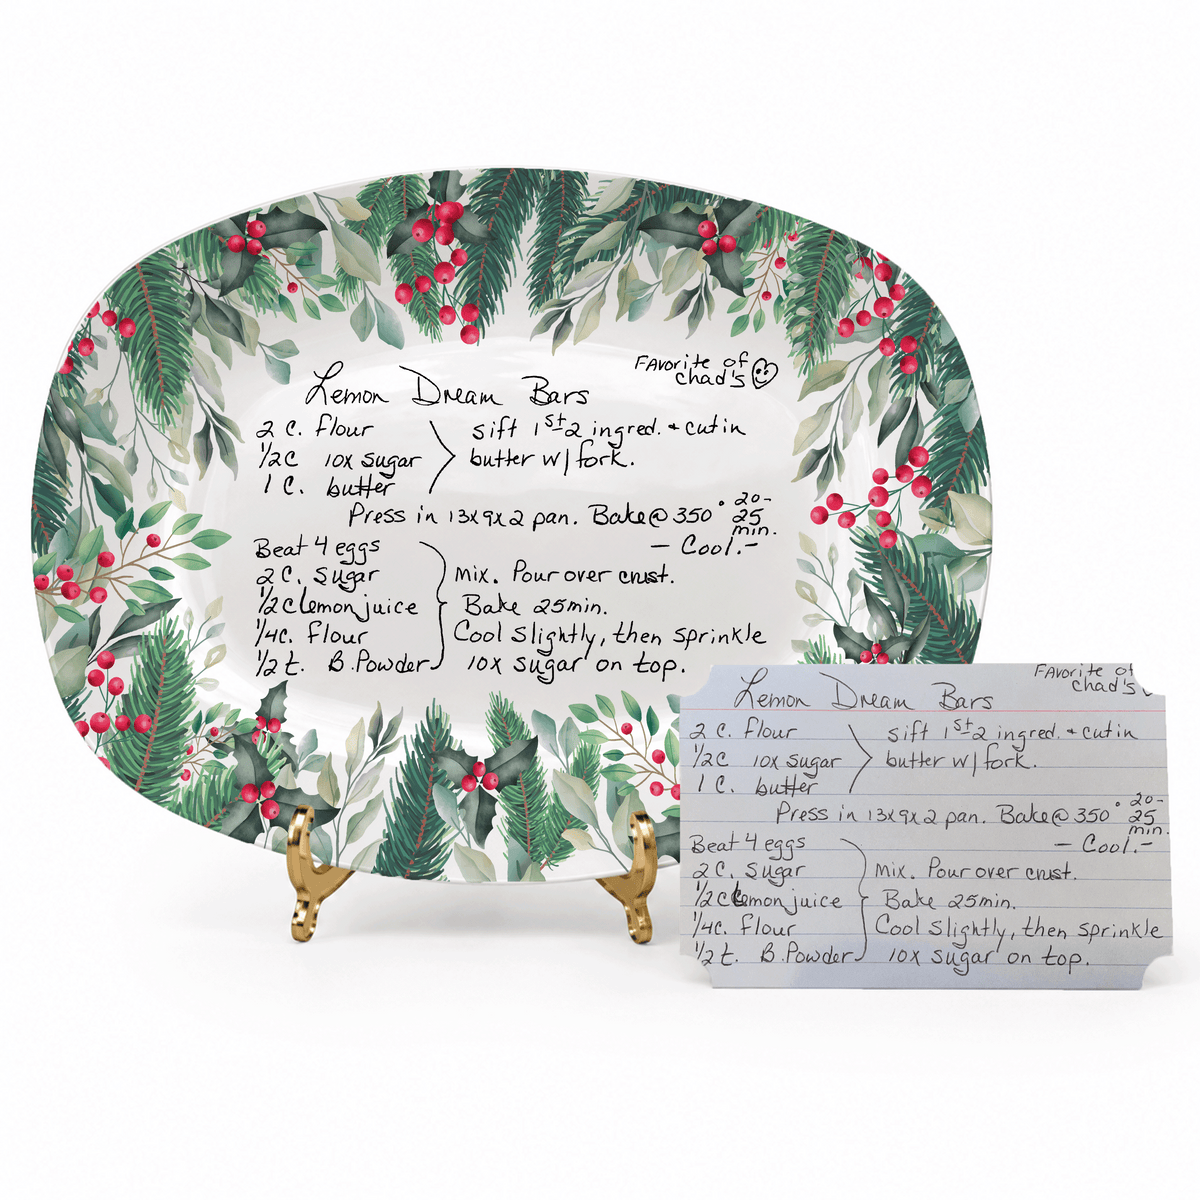 Favorite of
Chad's
Lemon Dream Bars
2 C. flour
sift 1st 2 ingred. + cut in
1/2 C 10x sugar
butter w/ fork.
1 C. butter
Press in 13x9x2 pan. Bake @ 350° 20-
25
min.
- Cool. -
Beat 4 eggs
2 C. Sugar
mix. Pour over crust.
1/2 C lemon juice
Bake 25 min.
1/4 C. flour
Cool slightly, then sprinkle
1/2 t. B. Powder
10x sugar on top.
Favorite of
Chad's
Lemon Dream Bars
2 C. flour
sift 1st 2 ingred. + cut in
1/2 C 10x sugar
butter w/ fork.
1 C. butter
Press in 13x9x2 pan. Bake @ 350° 20-
25
min.
- Cool. -
Beat 4 eggs
2 C. Sugar
mix. Pour over crust.
1/2 C lemon juice
Bake 25 min.
1/4 C. flour
Cool slightly, then sprinkle
1/2 t. B. Powder
10x sugar on top.